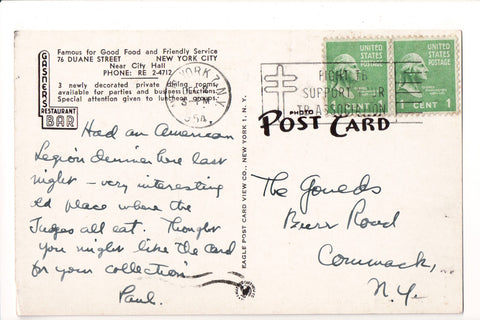 Famous for Good Food and Friendly Service
76 DUANE STREET NEW YORK CITY
Near City Hall
PHONE: RE 2-4712
3 newly decorated private dining rooms,
available for parties and business functions.
Special attention given to luncheon groups.
GASNERS
RESTAURANT
BAR
Had an American
Legion dinner here last
night – very interesting
old place where the
Judges all eat. Thought
you might like the card
for your collection
Paul.
EAGLE POST CARD VIEW CO., NEW YORK 1, N. Y.
YORK 7, N
PM
1954
FIGHT TB
SUPPORT YOUR
TB ASSOCIATION
UNITED
STATES
POSTAGE
UNITED
STATES
POSTAGE
1 CENT 1
PHOTO
POST CARD
The Goulds
Burr Road
Commack,
N.Y.